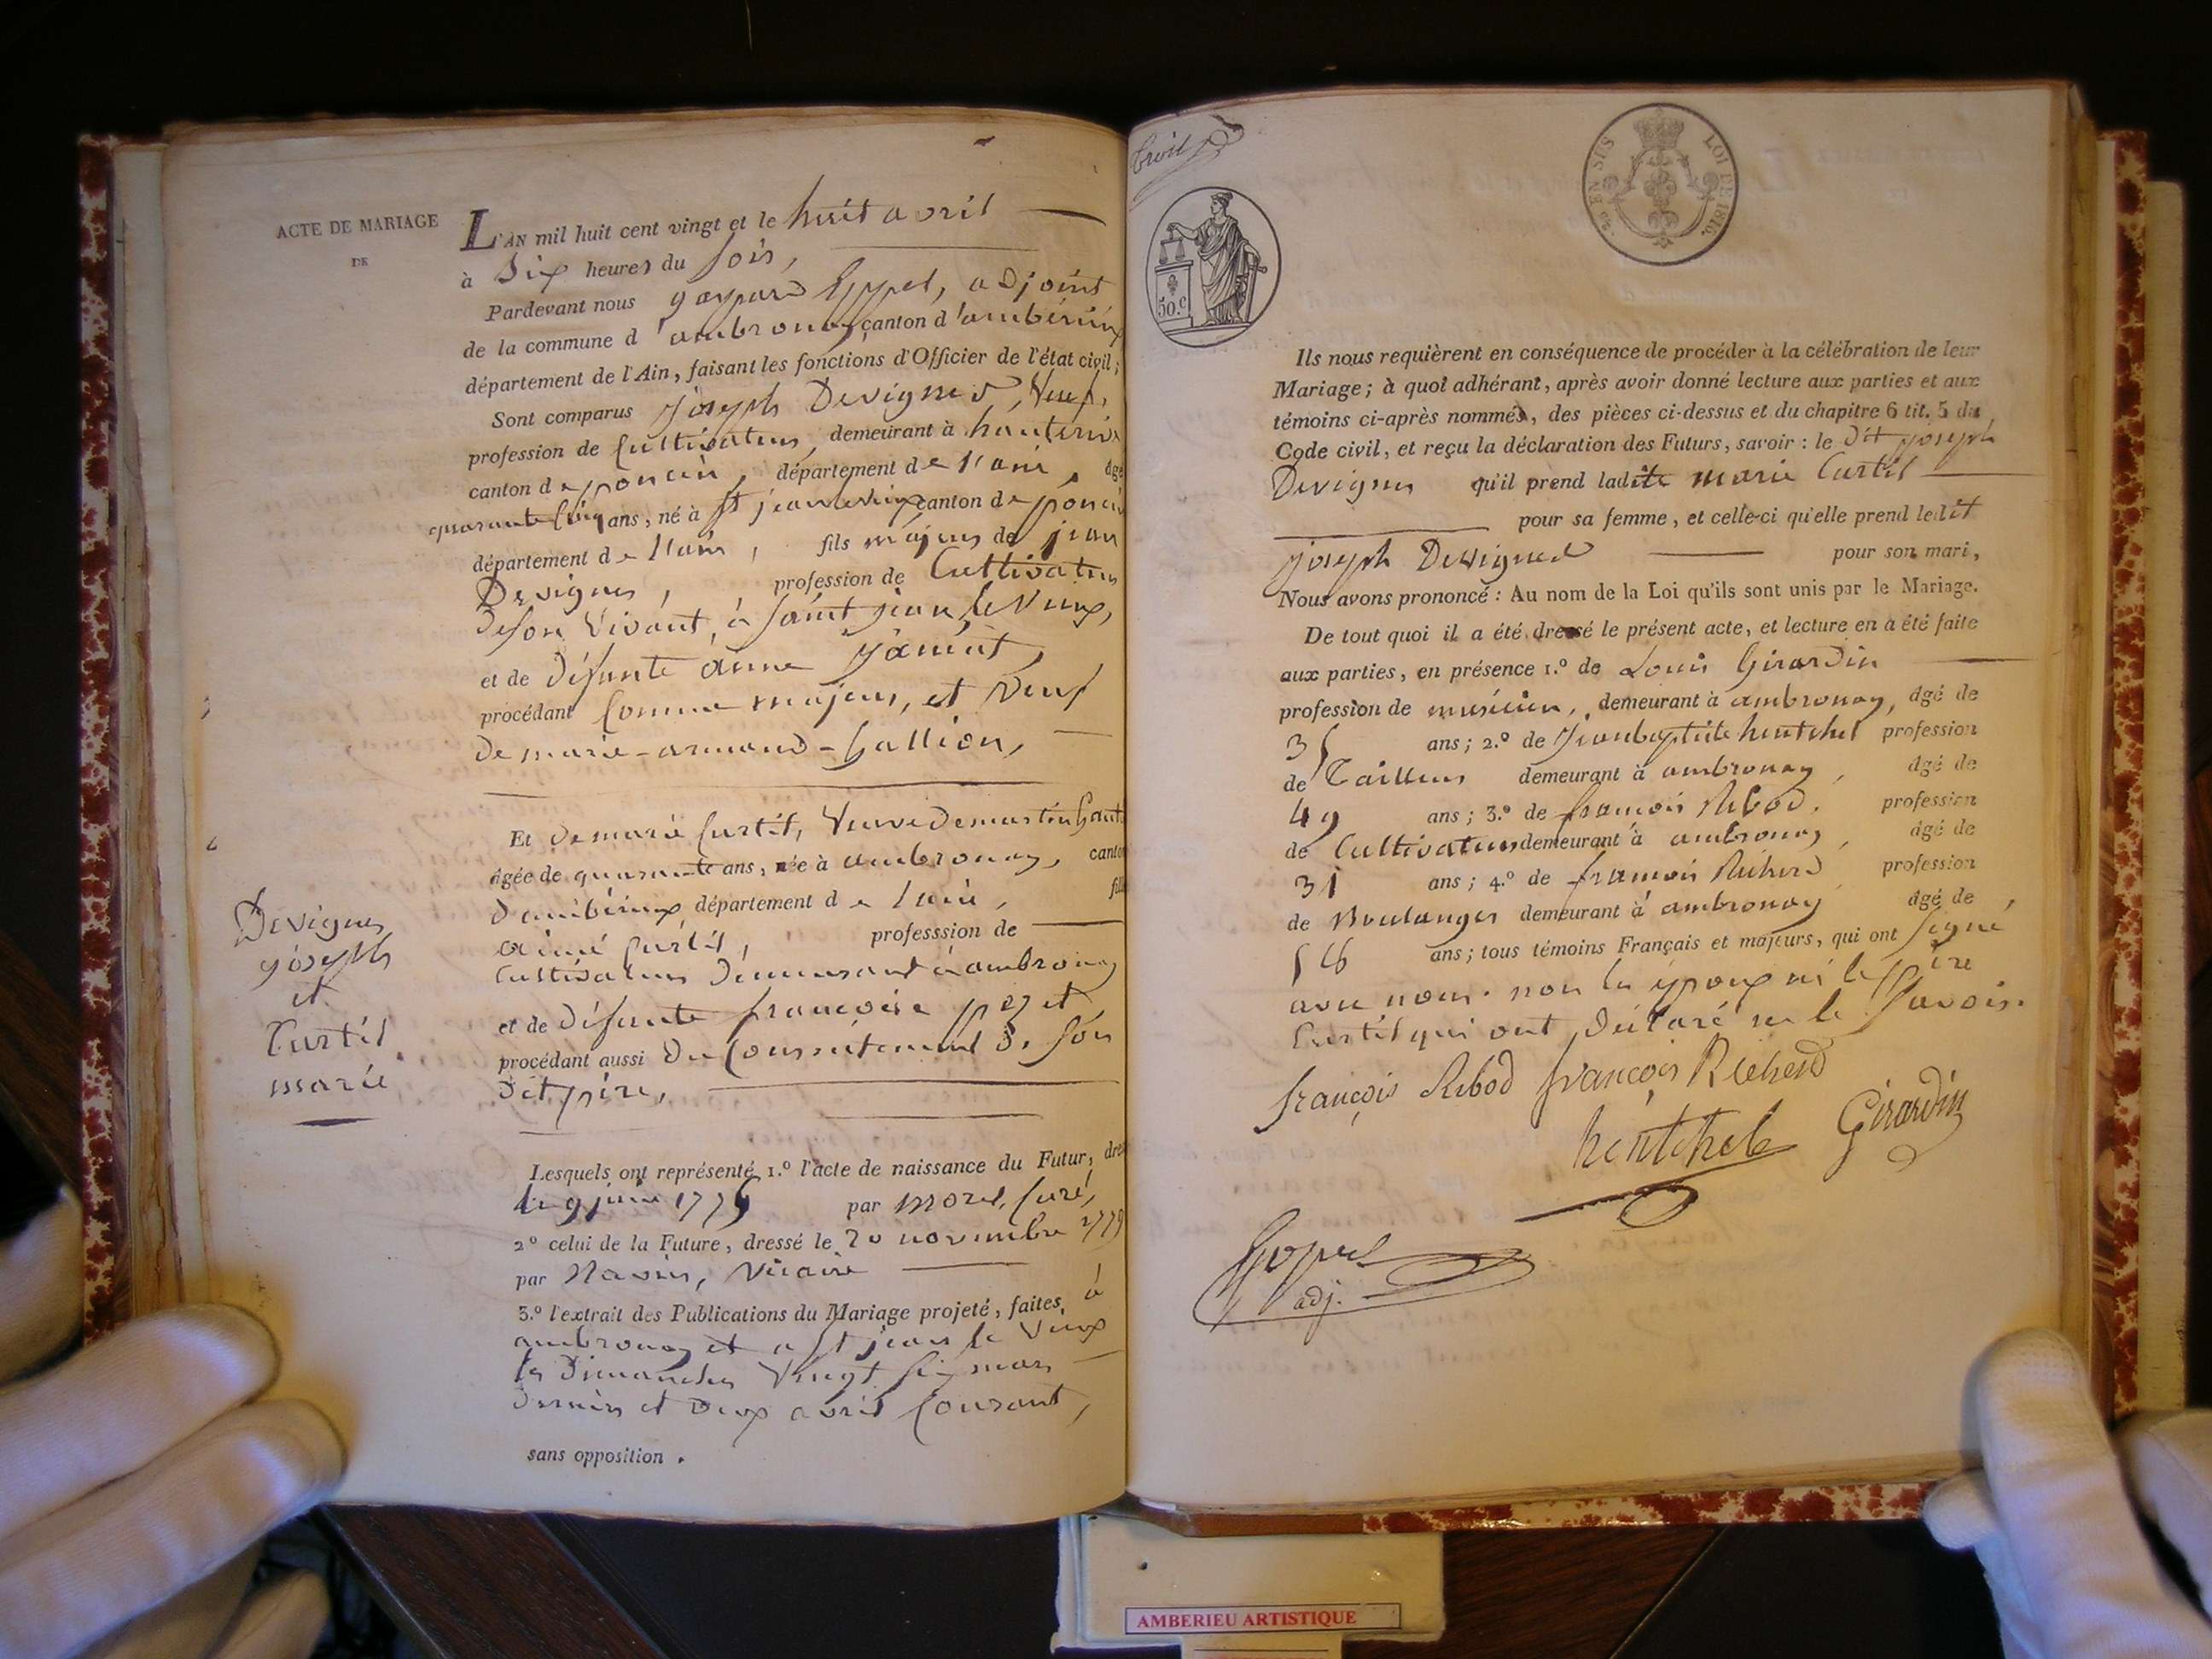 ACTE DE MARIAGE
DE
Devignes
joseph
et
Curtil
marie
L'AN mil huit cent vingt et le huit avril
à Six heures du soir,
Pardevant nous gaspard adjoint
de la commune d'ambronay, canton d'ambérieux
département de l'Ain, faisant les fonctions d'Officier de l'état civil;
Sont comparus joseph Devignes, Veuf,
profession de Cultivateur, demeurant à hauterive
canton de poncin, département de l'ain, âgé
quarante cinq ans, né à St jean le vieux canton de poncin
département de l'ain, fils majeur de jean
Devignes, profession de Cultivateur
de son Vivant, à saint jean le Vieux,
et de défunte anne
procédant comme majeur, et veuf
de marie-armand-Gallion,
Et de marie Curtil, Veuve de martin
âgée de quarante ans, née à ambronay, canton
d'ambérieux, département de l'ain, fille
aimé Curtil, professsion de
Cultivateur demeurant à ambronay
et de défunte françoise pezet
procédant aussi du Consentement de son
dit père,
Lesquels ont représenté 1.º l'acte de naissance du Futur, dressé
le 9 juin 1775 par morel, Curé,
2º celui de la Future, dressé le 20 novembre 1779
par Vicaire
3.º l'extrait des Publications du Mariage projeté, faites à
ambronay et a St jean le Vieux
les Dimanches Vingt Six mars
dernier et deux avril Courant,
sans opposition.
50.c
LOI DE 1816.
Ils nous requièrent en conséquence de procéder à la célébration de leur
Mariage; à quoi adhérant, après avoir donné lecture aux parties et aux
témoins ci-après nommés, des pièces ci-dessus et du chapitre 6 tit. 5 du
Code civil, et reçu la déclaration des Futurs, savoir: le dit joseph
Devignes qu'il prend ladite marie Curtil
pour sa femme, et celle-ci qu'elle prend ledit
joseph Devignes pour son mari,
Nous avons prononcé: Au nom de la Loi qu'ils sont unis par le Mariage.
De tout quoi il a été dressé le présent acte, et lecture en a été faite
aux parties, en présence 1.º de Louis Girardin
profession de musicien, demeurant à ambronay, âgé de
35 ans; 2.º de Jean baptiste hentchel profession
de Tailleur demeurant à ambronay, âgé de
49 ans; 3.º de françois Ribod, profession
de Cultivateur demeurant à ambronay, âgé de
31 ans; 4.º de françois Richerd profession
de Boulanger demeurant à ambronay, âgé de
56 ans; tous témoins Français et majeurs, qui ont signé
avec nous. non les époux ni le père
Curtil qui ont déclaré ne le savoir.
françois Ribod françois Richerd
hentchel Girardin
adj.
AMBERIEU ARTISTIQUE